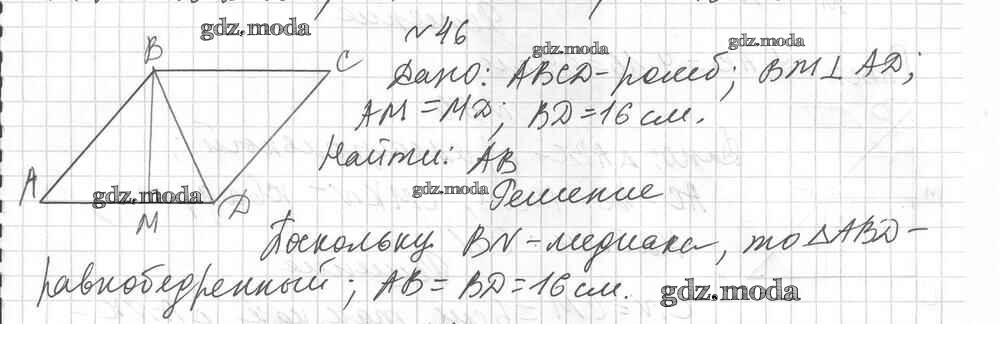 gdz.moda
№46
gdz.moda
gdz.moda
B
C
Дано: ABCD-ромб; BM⊥AD;
AM=MD; BD=16 см.
Найти: AB
A
gdz.moda
gdz.moda
Решение
M
D
Поскольку BN-медиана, то △ABD-
равнобедренный; AB=BD=16 см.
gdz.moda